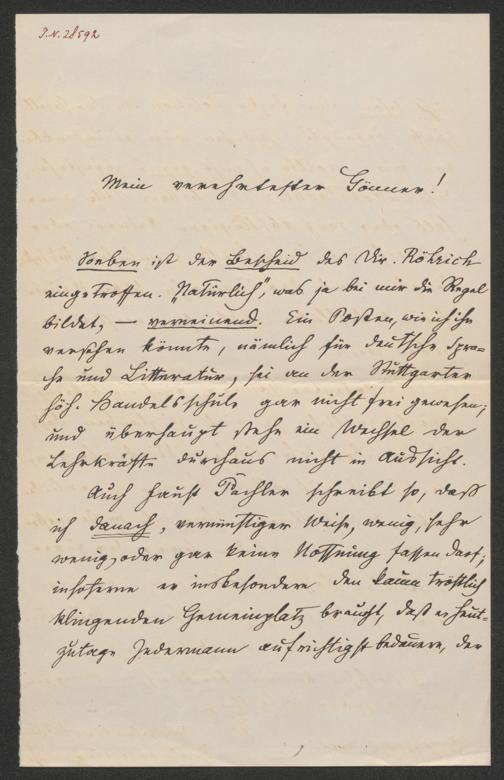 J.N. 28592
Mein verehrtester Gönner!
Soeben ist der Bescheid des Dir. Röhrich
eingetroffen. „Natürlich“, was ja bei mir die Regel
bildet, — verneinend. Ein Posten, wie ich ihn
versehen könnte, nämlich für deutsche Spra-
che und Litteratur, sei an der Stuttgarter
höh. Handelsschule gar nicht frei gewesen;
und überhaupt stehe ein Wechsel der
Lehrkräfte durchaus nicht in Aussicht.
Auch Faust Pachler schreibt so, daß
ich danach, vernünftiger Weise, wenig, sehr
wenig, oder gar keine Hoffnung fassen darf;
insoferne er insbesondere den kaum tröstlich
klingenden Gemeinplatz braucht, daß er heut-
zutage Jedermann aufrichtigst bedauere, der